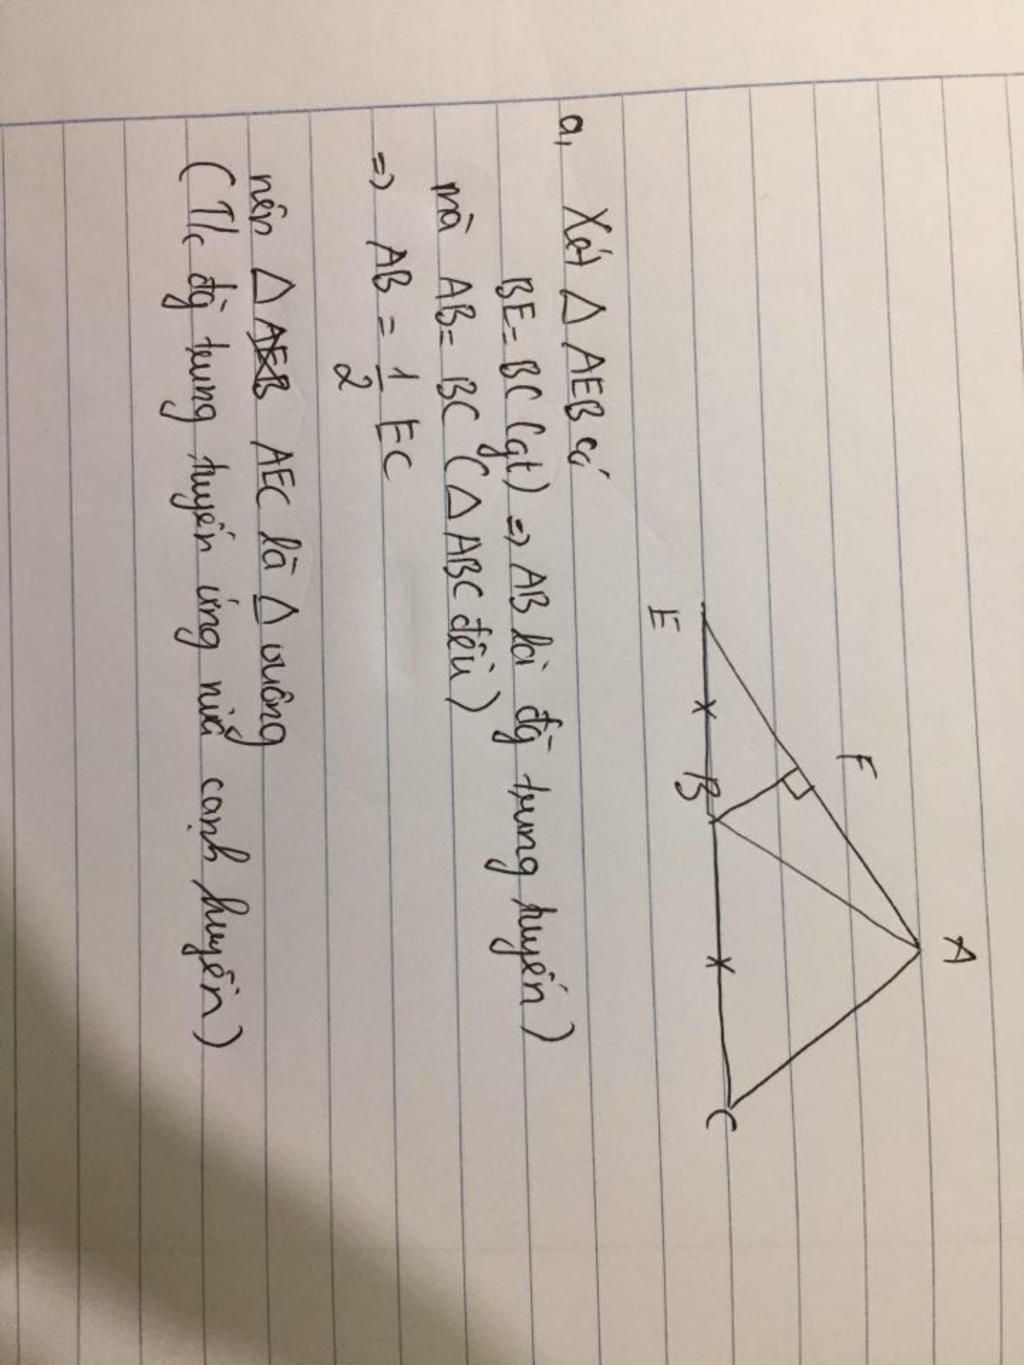 A
F
E
B
C
a, Xét △ AEB có
BE = BC (gt) => AB là đg̀ trung tuyến)
mà AB = BC (△ ABC đều)
=> AB = 1/2 EC
nên △ AEC là △ vuông
(T/c đg̀ trung tuyến ứng nửa cạnh huyền)